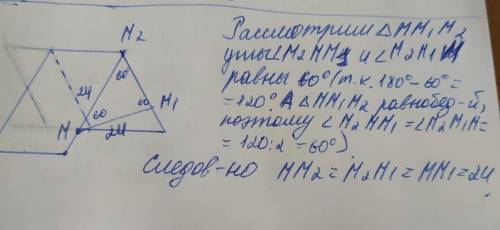 M2
24
60
60
60
M1
M
24
Рассмотрим △MM1M2
углы ∠M2MM1 и ∠M2M1M
равны 60° (т.к. 180°-60°=
=120°. А △MM1M2 равнобед-й,
поэтому ∠M2MM1=∠M2M1M=
=120:2=60°)
Следов-но MM2=M2M1=MM1=24